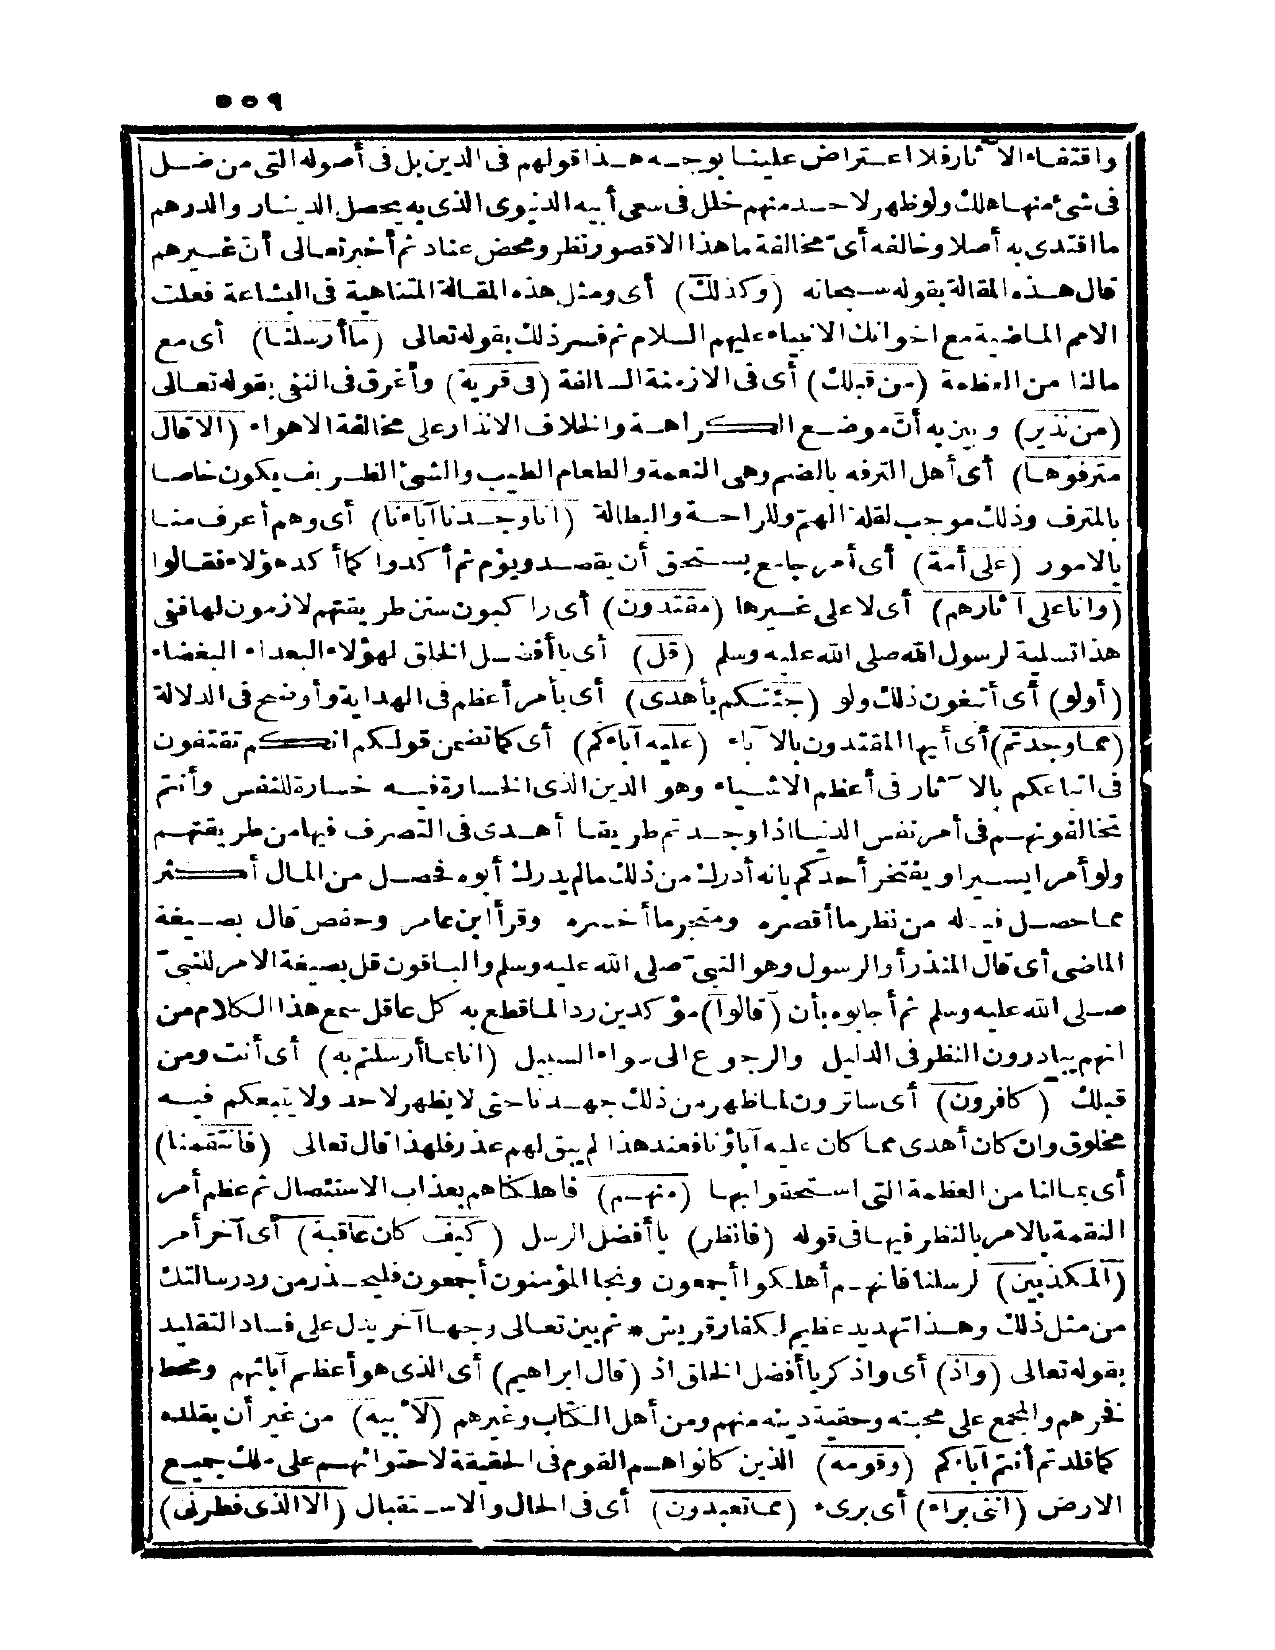 ٥٥٩
واقتفاء الآثار فلا اعتراض علينا بوجه هذا قولهم فى الدين بل فى أصوله التى من ضل
فى شئ منها هلك ولو ظهر لاحد منهم خلل فى سعى أبيه الدنيوى الذى به يحصل الدينار والدرهم
ما اقتدى به أصلا وخالفه أى مخالفة ما هذا الا قصور نظر ومحض عناد ثم أخبر تعالى أن غيرهم
قال هذه المقالة بقوله سبحانه (وكذلك) أى ومثل هذه المقالة المتناهية فى البشاعة فعلت
الامم الماضية مع اخوانك الانبياء عليهم السلام ثم فسر ذلك بقوله تعالى (ما أرسلنا) أى مع
مالنا من العظمة (من قبلك) أى فى الازمنة السالفة (فى قرية) وأغرق فى النفى بقوله تعالى
(من نذير) وبين به أن موضع الكراهة والخلاف الانذار على مخالفة الاهواء (الا قال
مترفوها) أى أهل الترفه بالضم وهى النعمة والطعام الطيب والشئ الظريف يكون خاصا
بالمترف وذلك موجب لقلة الهم وللراحة والبطالة (انا وجدنا آباءنا) أى وهم أعرف منا
بالامور (على أمة) أى أمر جامع يستحق أن يقصد ويؤم ثم أكدوا كما أكد هؤلاء فقالوا
(وانا على آثارهم) أى لا على غيرها (مقتدون) أى راكبون سنن طريقتهم لازمون لها ففى
هذا تسلية لرسول الله صلى الله عليه وسلم (قل) أى يا أفضل الخلق لهؤلاء البعداء البغضاء
(أولو) أى أتبغون ذلك ولو (جئتكم بأهدى) أى بأمر أعظم فى الهداية وأوضح فى الدلالة
(مما وجدتم) أى أيها المقتدون بالآباء (عليه آباءكم) أى كما تضمن قولكم انكم تقتفون
فى اتباعكم بالآثار فى أعظم الاشياء وهو الدين الذى الخسارة فيه خسارة للنفس وأنتم
تخالفونهم فى أمر نفس الدنيا اذا وجدتم طريقا أهدى فى التصرف فيها من طريقتهم
ولو أمرا يسيرا ويفتخر أحدكم بانه أدرك من ذلك مالم يدرك أبوه فحصل من المال أكثر
مما حصل فياله من نظر ما أقصره ومتجر ما أخسره وقرأ ابن عامر وحفص قال بصيغة
الماضى أى قال المنذر أو الرسول وهو النبى صلى الله عليه وسلم والباقون قل بصيغة الامر للنبى
صلى الله عليه وسلم ثم أجابوه بأن (قالوا) مؤكدين ردا لما قطع به كل عاقل سمع هذا الكلام من
انهم يبادرون النظر فى الدليل والرجوع الى سواء السبيل (انا بما أرسلتم به) أى أنت ومن
قبلك (كافرون) أى ساترون لما ظهر من ذلك جهدنا حتى لا يظهر لاحد ولا يتبعكم فيه
مخلوق وان كان أهدى مما كان عليه آباؤنا فعند هذا لم يبق لهم عذر فلهذا قال تعالى (فانتقمنا)
أى بمالنا من العظمة التى استحقوا بها (منهم) فأهلكناهم بعذاب الاستئصال ثم عظم أمر
النقمة بالامر بالنظر فيها فى قوله (فانظر) يا أفضل الرسل (كيف كان عاقبة) أى آخر أمر
(المكذبين) لرسلنا فانهم أهلكوا أجمعون ونجا المؤمنون أجمعون فليحذر من رد رسالتك
من مثل ذلك وهذا تهديد عظيم لكفار قريش * ثم بين تعالى وجها آخر يدل على فساد التقليد
بقوله تعالى (واذ) أى واذكر يا أفضل الخلق اذ (قال ابراهيم) أى الذى هو أعظم آبائهم ومحط
فخرهم والمجمع على محبته وحقية دينه منهم ومن أهل الكتاب وغيرهم (لأبيه) من غير أن يقلده
كما قلدتم أنتم آباءكم (وقومه) الذين كانوا هم القوم فى الحقيقة لاحتوائهم على ملك جميع
الارض (اننى براء) أى برىء (مما تعبدون) أى فى الحال والاستقبال (الا الذى فطرنى)